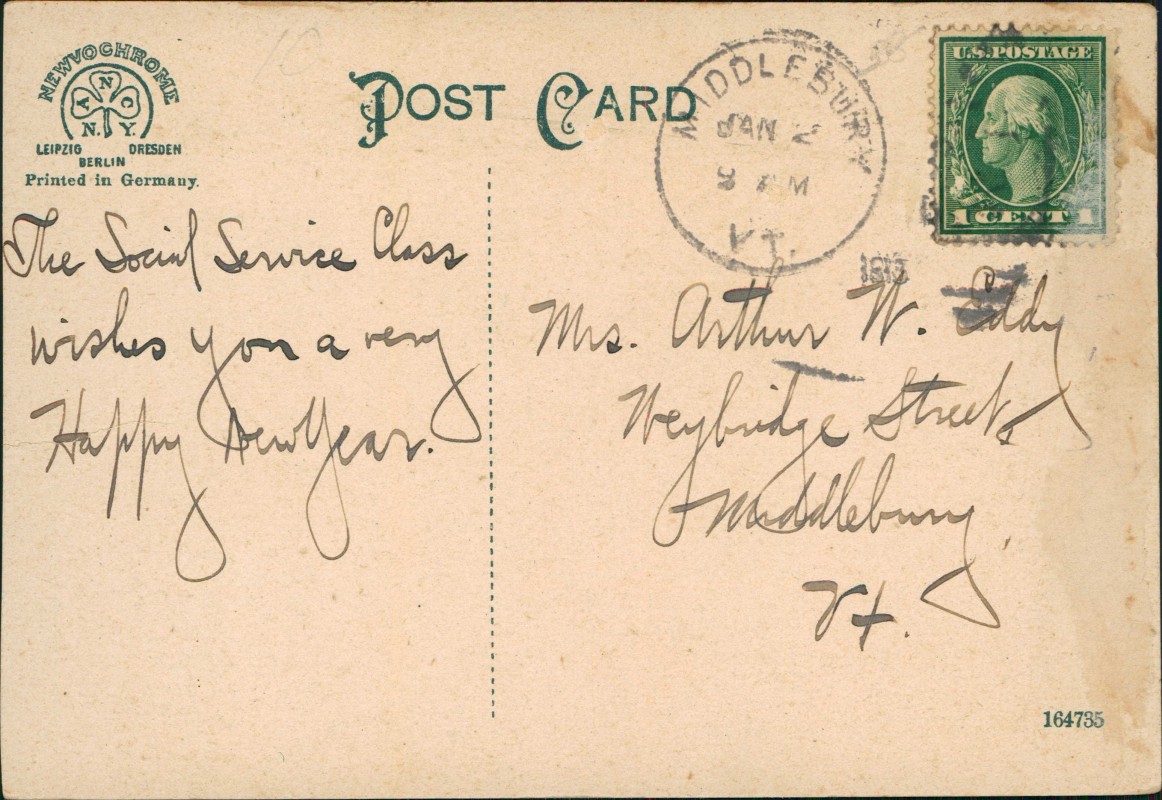 NEWVOCHROME
A N C
N. Y.
LEIPZIG DRESDEN
BERLIN
Printed in Germany.
POST CARD
MIDDLEBURY
JAN 2
M
VT.
U.S. POSTAGE
1 CENT 1
The Social Service Class
wishes you a very
Happy New Year.
Mrs. Arthur W. Eddy
Weybridge Street,
Middlebury,
Vt.
164735